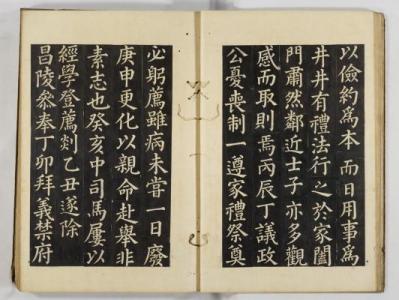 以儉約爲本而日用事爲
井井有禮法行之於家閨
門肅然鄰近士子亦多觀
感而取則焉丙辰丁議政
公憂喪制一遵家禮祭奠
必躬薦雖病未嘗一日廢
庚申更化以親命赴擧非
素志也癸亥中司馬屢以
經學登薦剡乙丑遂除
昌陵參奉丁卯拜義禁府